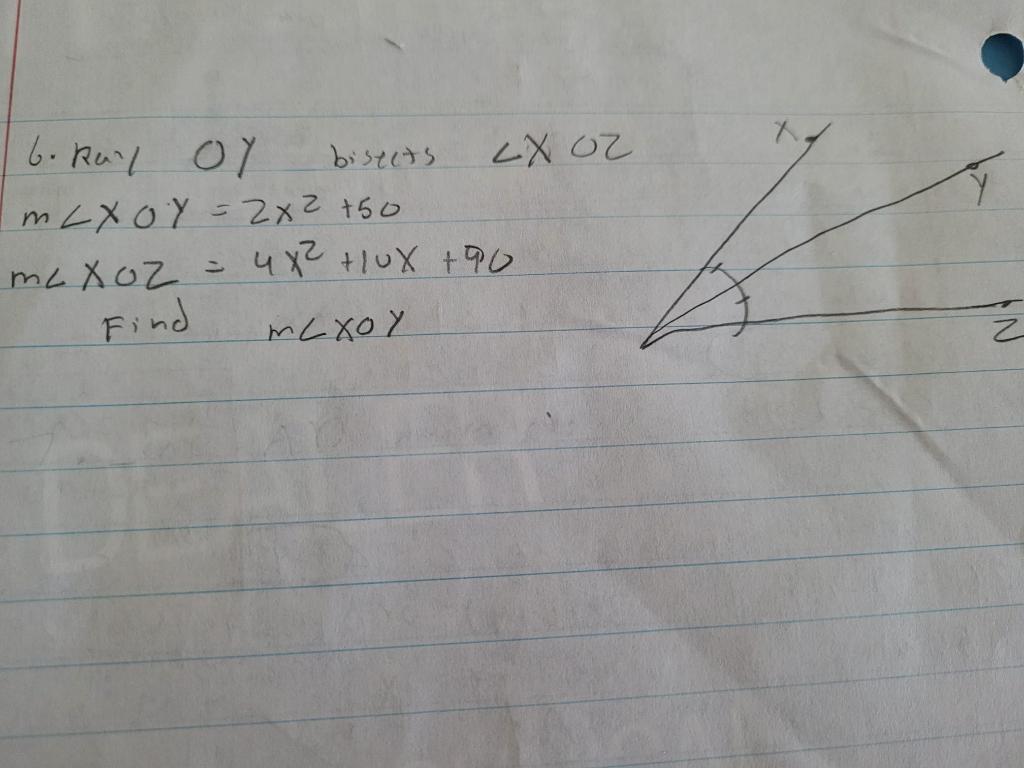 6. Ray OY bisects ∠XOZ
m∠XOY = 2x² +50
m∠XOZ = 4x² +10x +90
Find m∠XOY
X
Y
Z